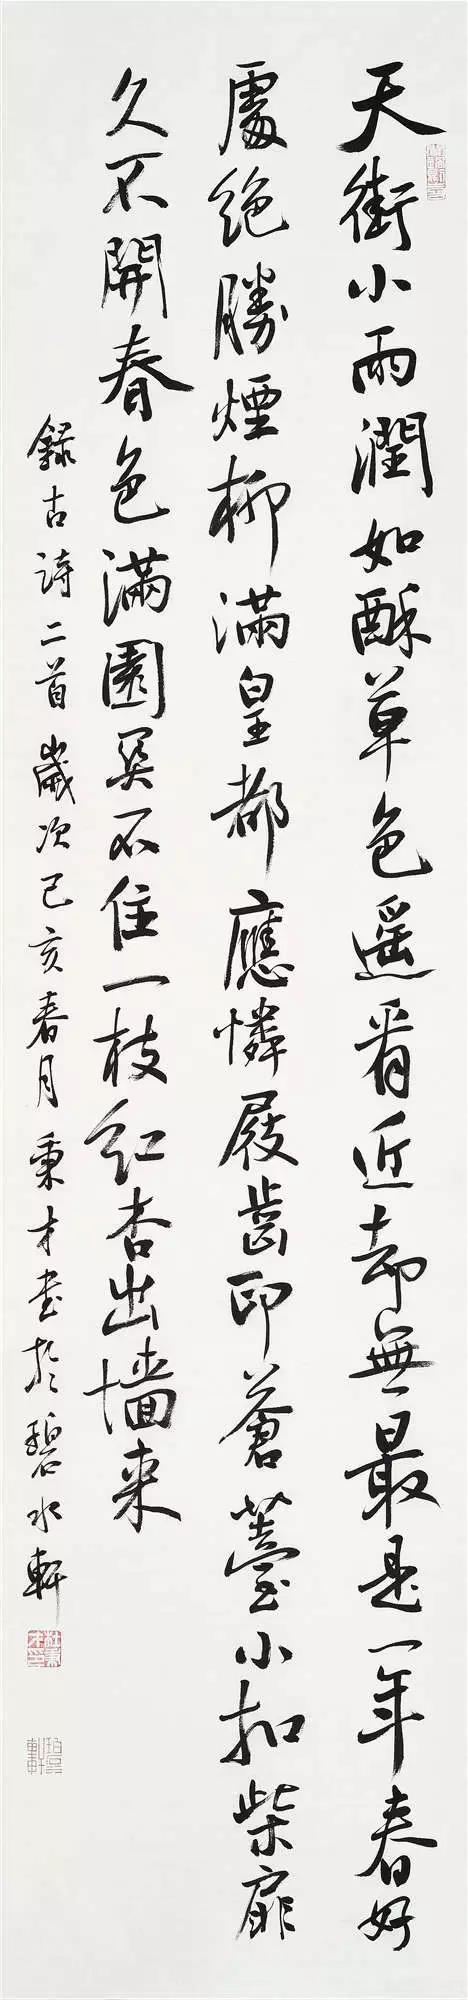 天街小雨潤如酥草色遙看近却無最是一年春好
處絶勝煙柳滿皇都應憐屐齒印蒼薹小扣柴扉
久不開春色滿園關不住一枝紅杏出墻来
録古詩二首歲次己亥春月秉才书於碧水軒
杜秉才印